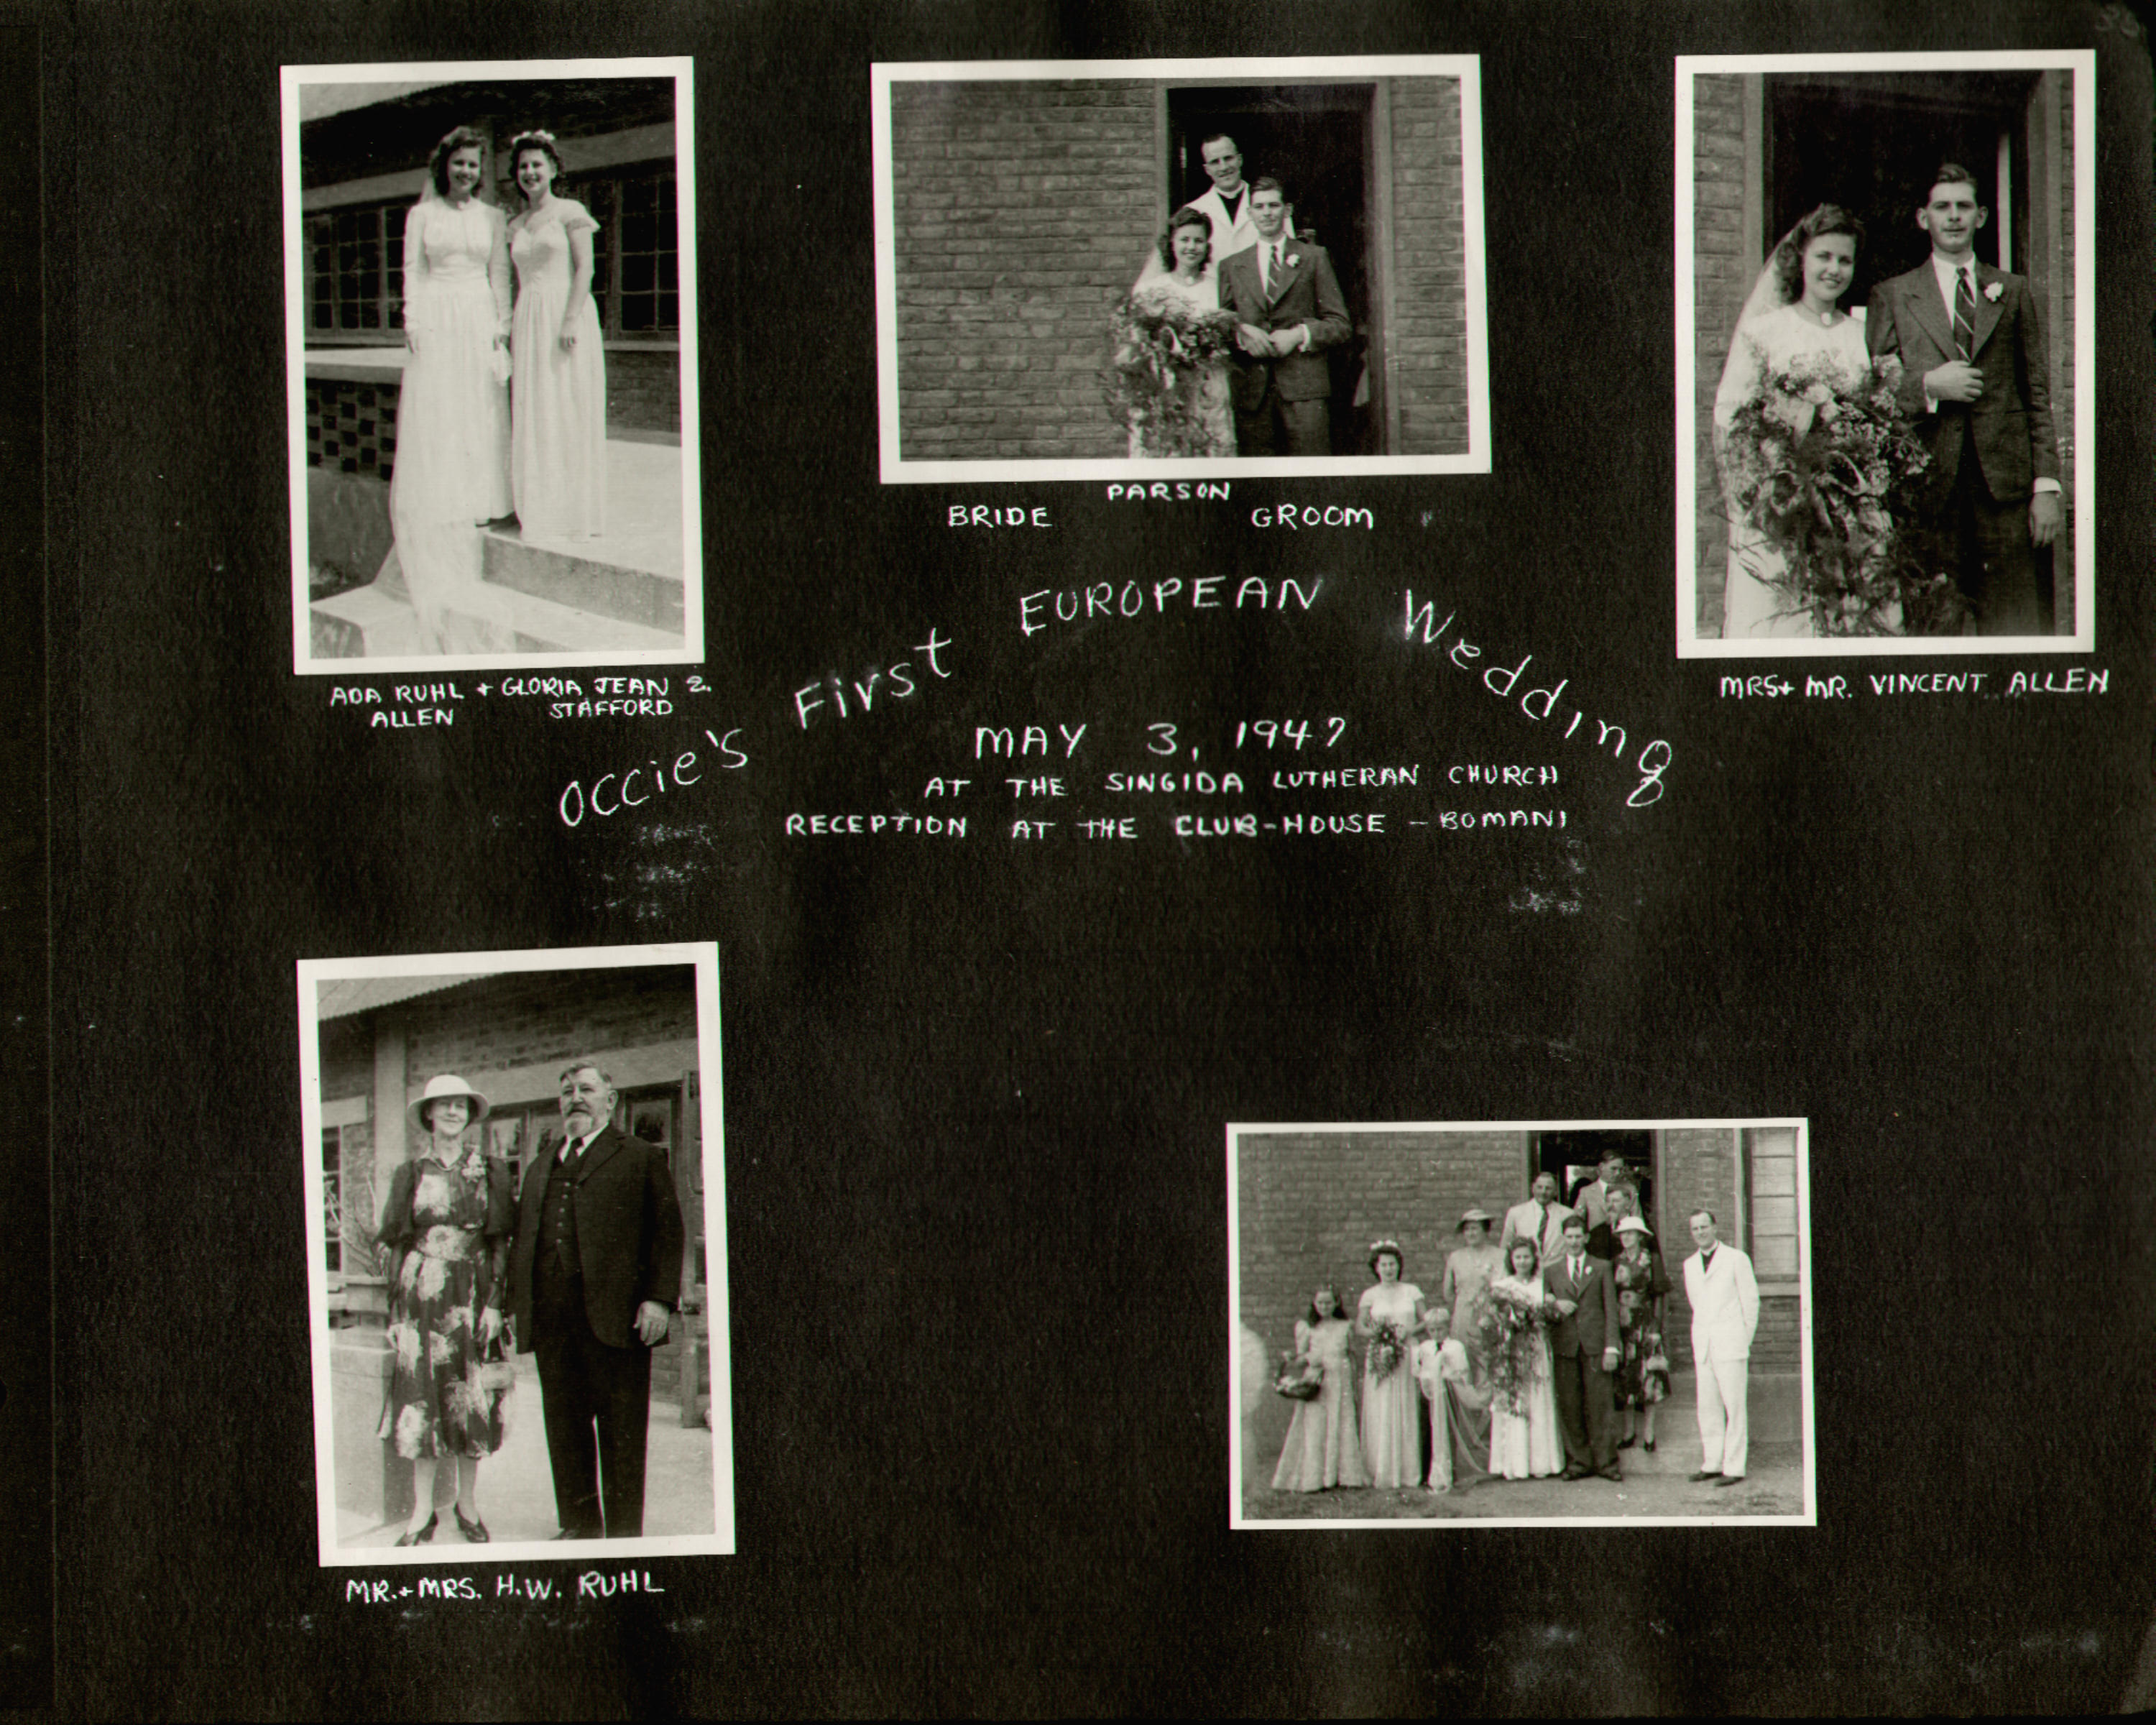 PARSON
BRIDE GROOM
ADA RUHL + GLORIA JEAN Z.
ALLEN STAFFORD
MRS + MR. VINCENT ALLEN
Occie's First EUROPEAN Wedding
MAY 3, 1947
AT THE SINGIDA LUTHERAN CHURCH
RECEPTION AT THE CLUB-HOUSE - BOMANI
MR. + MRS. H.W. RUHL